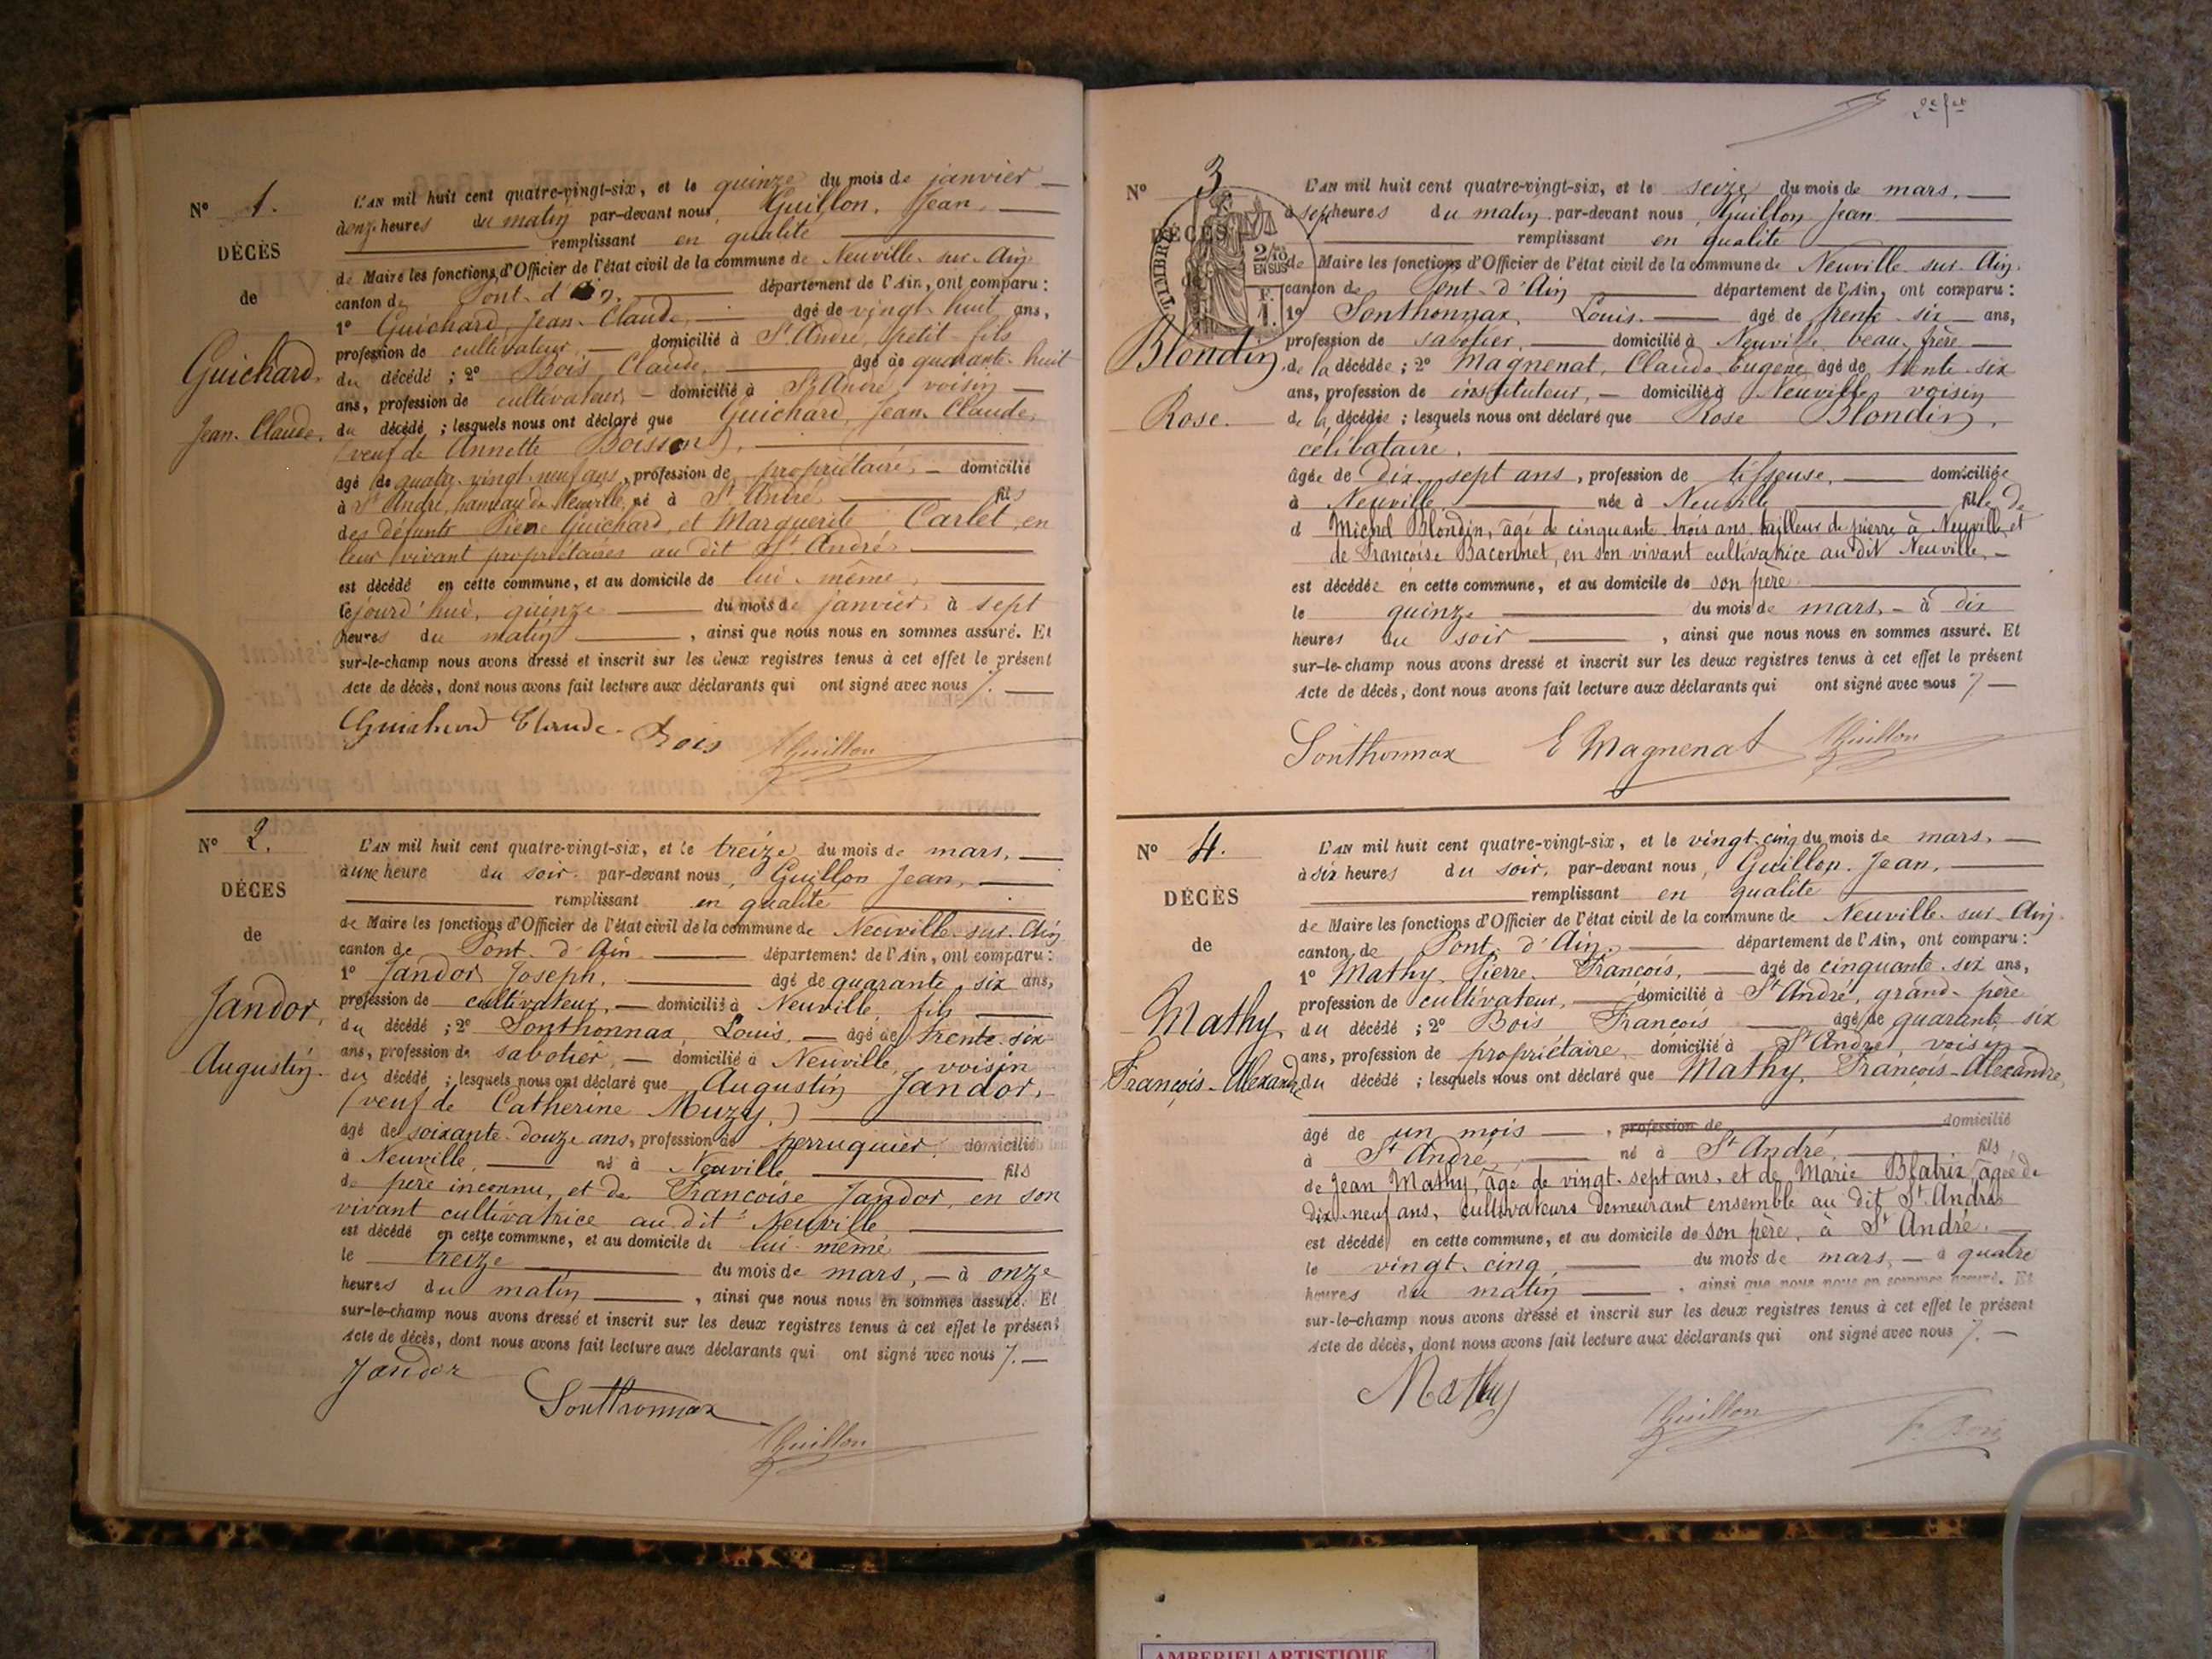 N° 1.
DÉCÈS
de
Guichard,
Jean-Claude.
L'AN mil huit cent quatre-vingt-six, et le quinze du mois de janvier
à onze heures du matin par-devant nous, Guillon, Jean,
remplissant en qualité
de Maire les fonctions d'Officier de l'état civil de la commune de Neuville-sur-Ain
canton de Pont-d'Ain, département de l'Ain, ont comparu :
1° Guichard, Jean-Claude, âgé de vingt-huit ans,
profession de cultivateur, domicilié à St André, petit-fils
du décédé ; 2° Bois Claude, âgé de quarante-huit
ans, profession de cultivateur, domicilié à St André voisin
du décédé ; lesquels nous ont déclaré que Guichard, Jean-Claude,
(veuf de Annette Boisson),
âgé de quatre-vingt-neuf ans, profession de propriétaire, domicilié
à St André, hameau de Neuville, né à St André fils
des défunts Pierre Guichard, et Marguerite Carlet, en
leur vivant propriétaires au dit St André
est décédé en cette commune, et au domicile de lui-même,
cejourd'hui, quinze du mois de janvier, à sept
heures du matin, ainsi que nous nous en sommes assuré. Et
sur-le-champ nous avons dressé et inscrit sur les deux registres tenus à cet effet le présent
Acte de décès, dont nous avons fait lecture aux déclarants qui ont signé avec nous /.
Guichard Claude Bois JGuillon
N° 2.
DÉCÈS
de
Jandor,
Augustin.
L'AN mil huit cent quatre-vingt-six, et le treize du mois de mars,
à une heure du soir par-devant nous, Guillon Jean,
remplissant en qualité
de Maire les fonctions d'Officier de l'état civil de la commune de Neuville-sur-Ain
canton de Pont-d'Ain département de l'Ain, ont comparu :
1° Jandor Joseph, âgé de quarante-six ans,
profession de cultivateur, domicilié à Neuville, fils
du décédé ; 2° Sonthonnax, Louis, âgé de trente-six
ans, profession de sabotier, domicilié à Neuville, voisin
du décédé ; lesquels nous ont déclaré que Augustin Jandor,
(veuf de Catherine Muzy,)
âgé de soixante-douze ans, profession de perruquier, domicilié
à Neuville, né à Neuville fils
de père inconnu, et de Françoise Jandor, en son
vivant cultivatrice au dit Neuville
est décédé en cette commune, et au domicile de lui-même
le treize du mois de mars, à onze
heures du matin, ainsi que nous nous en sommes assuré. Et
sur-le-champ nous avons dressé et inscrit sur les deux registres tenus à cet effet le présent
Acte de décès, dont nous avons fait lecture aux déclarants qui ont signé avec nous /.
Jandor
Sonthonnax
JGuillon
2e fet
N° 3
DÉCÈS
TIMBRE
2/10
EN SUS
F.
1.
Blondin,
Rose.
L'AN mil huit cent quatre-vingt-six, et le seize du mois de mars,
à sept heures du matin par-devant nous Guillon Jean
remplissant en qualité
de Maire les fonctions d'Officier de l'état civil de la commune de Neuville-sur-Ain,
canton de Pont-d'Ain département de l'Ain, ont comparu :
1° Sonthonnax, Louis, âgé de trente-six ans,
profession de sabotier, domicilié à Neuville, beau-frère
de la décédée ; 2° Magnenat, Claude Eugène âgé de trente-six
ans, profession de instituteur, domicilié à Neuville voisin
de la décédée ; lesquels nous ont déclaré que Rose Blondin,
célibataire,
âgée de dix-sept ans, profession de tisseuse, domiciliée
à Neuville née à Neuville fille de
d Michel Blondin, âgé de cinquante-trois ans, tailleur de pierre à Neuville, et
de Françoise Baconnet, en son vivant cultivatrice au dit Neuville,
est décédée en cette commune, et au domicile de son père
le quinze du mois de mars, à dix
heures du soir, ainsi que nous nous en sommes assuré. Et
sur-le-champ nous avons dressé et inscrit sur les deux registres tenus à cet effet le présent
Acte de décès, dont nous avons fait lecture aux déclarants qui ont signé avec nous /
Sonthonnax E Magnenat JGuillon
N° 4.
DÉCÈS
de
Mathy,
François-Alexandre
L'AN mil huit cent quatre-vingt-six, et le vingt-cinq du mois de mars,
à six heures du soir, par-devant nous, Guillon Jean,
remplissant en qualité
de Maire les fonctions d'Officier de l'état civil de la commune de Neuville-sur-Ain
canton de Pont-d'Ain, département de l'Ain, ont comparu :
1° Mathy, Pierre-François, âgé de cinquante-six ans,
profession de cultivateur, domicilié à St André, grand-père
du décédé ; 2° Bois François âgé de quarante-six
ans, profession de propriétaire domicilié à St André voisin
du décédé ; lesquels nous ont déclaré que Mathy, François-Alexandre,
âgé de un mois, profession de domicilié
à St André, né à St André, fils
de Jean Mathy, âgé de vingt-sept ans, et de Marie Blatrix, âgée de
dix-neuf ans, cultivateurs demeurant ensemble au dit St André
est décédé en cette commune, et au domicile de son père, à St André.
le vingt-cinq, du mois de mars, à quatre
heures du matin, ainsi que nous nous en sommes assuré. Et
sur-le-champ nous avons dressé et inscrit sur les deux registres tenus à cet effet le présent
Acte de décès, dont nous avons fait lecture aux déclarants qui ont signé avec nous /.
Mathy
JGuillon F. Bois
AMBERIEU ARTISTIQUE